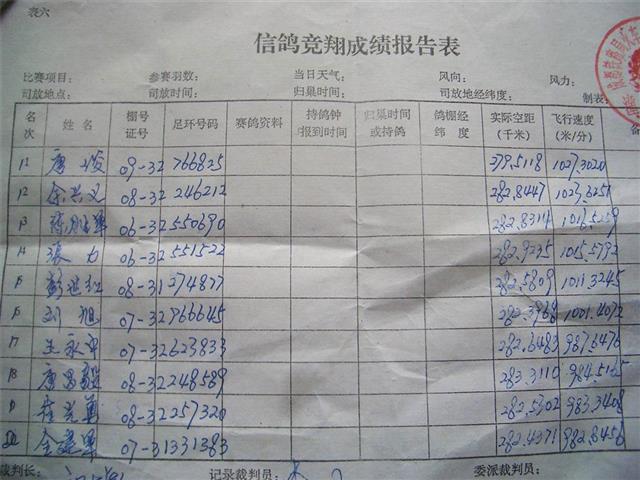 表六
信鸽竞翔成绩报告表
比赛项目： 参赛羽数： 当日天气： 风向： 风力：
司放地点： 司放时间： 归巢时间： 司放地经纬度： 制表：
名次 姓名 棚号证号 足环号码 赛鸽资料 持鸽钟报到时间 归巢时间或持鸽 鸽棚经纬度 实际空距(千米) 飞行速度(米/分) 备
11 唐俊 09-32 766825 379.5118 1027.3020
12 余兴义 08-32 246212 282.8447
13 06-32 550690 282.8314
14 张力 06-32 551522 282.9235 1015.5792
15 08-31 274877 282.5809 1011.3245
16 刘旭 07-32 966645 282.3968 1001.4072
17 王永军 07-32 623833 282.6483 987.6476
18 08-32 248589 283.3110
19 08-32 257320 282.5302 983.3408
20 07-31 331383 282.4371 982.8456
裁判长： 记录裁判员： 委派裁判员：